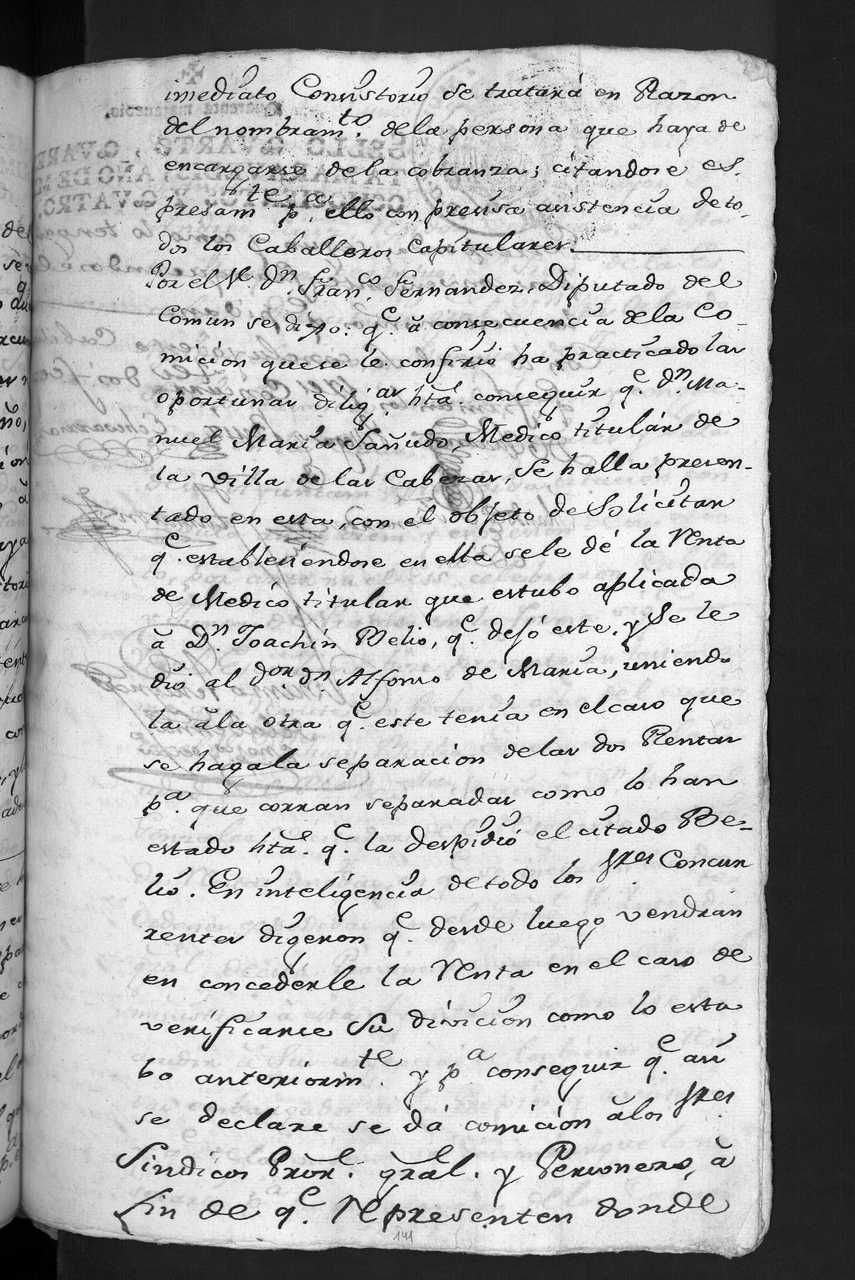 imediato Consistorio se tratará en Razon
del nombram.to dela persona que haya de
encargarse dela cobranza; citandose es-
presam.te p.a ello con precisa asistencia de to-
dos los Caballeros Capitulares.
Por el S.r D.n Fran.co Fernandez, Diputado del
Comun se dixo: q.e á consecuencia dela Co-
micion quese le confirió ha practicado las
oportunas dilig.as hta. conseguir q.e D.n Ma-
nuel Maria Sañudo, Medico titulár de
la villa delas Cabezas, se halla presen-
tado en esta, con el objeto de Solicitar
q.e estableciendose en ella sele dé la Renta
de Medico titular que estubo aplicada
á D.n Joachin Velio, q.e dejó este, y Se le
dió al D.or D.n Alfonso de Maria, uniendo
la ála otra q.e este tenia en el caso que
se haga la separacion delas dos Rentas
p.a que corran separadas como lo han
estado hta. q.e la despidió el citado Be-
lio. En inteligencia de todo los S.res Concur
rentes digeron q.e desde luego vendran
en concederle la Renta en el caso de
verificarse Su divicion como lo esta
bo anteriorm.te y p.a conseguir q.e asi
se declare se dá comicion álos S.res
Sindicos Pror. gral. y Personero, á
fin de q.e Representen donde
141